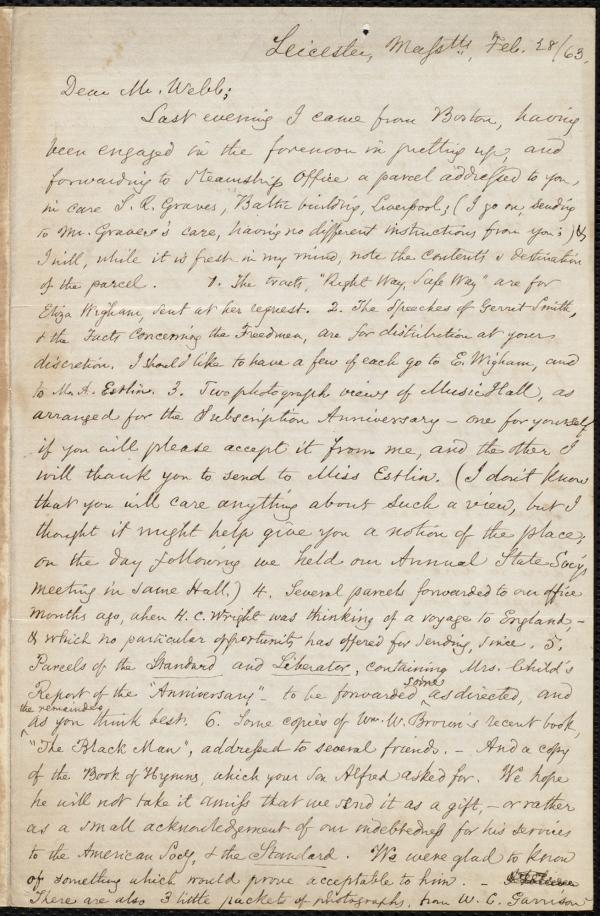 Leicester, Masstts., Feb. 28/63.
Dear Mr. Webb;
Last evening I came from Boston, having
been engaged in the forenoon in putting up, and
forwarding to Steamship Office a parcel addressed to you,
in care S. R. Graves, Baltic building, Liverpool; (I go on, sending
to Mr. Graves's care, having no different instructions from you;) &
I will, while it is fresh in my mind, note the contents & destination
of the parcel. 1. The tracts, "Right Way, Safe Way" are for
Eliza Wigham, sent at her request. 2. The Speeches of Gerrit Smith,
& the Facts Concerning the Freedmen, are for distribution at your
discretion. I should like to have a few of each go to E. Wigham, and
to M. A. Estlin. 3. Two photograph views of Music Hall, as
arranged for the Subscription Anniversary – one for yourself
if you will please accept it from me, and the other I
will thank you to send to Miss Estlin. (I don't know
that you will care anything about such a view, but I
thought it might help give you a notion of the place;
on the day following we held our Annual State Socy's
meeting in same Hall.) 4. Several parcels forwarded to our office
months ago, when H. C. Wright was thinking of a voyage to England, –
& which no particular opportunity has offered for sending, since. 5.
Parcels of the Standard and Liberator, containing Mrs. Child's
Report of the "Anniversary" – to be forwarded some as directed, and
the remainder as you think best. 6. Some copies of Wm. W. Brown's recent book,
"The Black Man", addressed to several friends. – And a copy
of the Book of Hymns, which your son Alfred asked for. We hope
he will not take it amiss that we send it as a gift, – or rather
as a small acknowledgement of our indebtedness for his services
to the American Socy, & the Standard. We were glad to know
of something which would prove acceptable to him. –
There are also 3 little packets of photographs, from W. L. Garrison